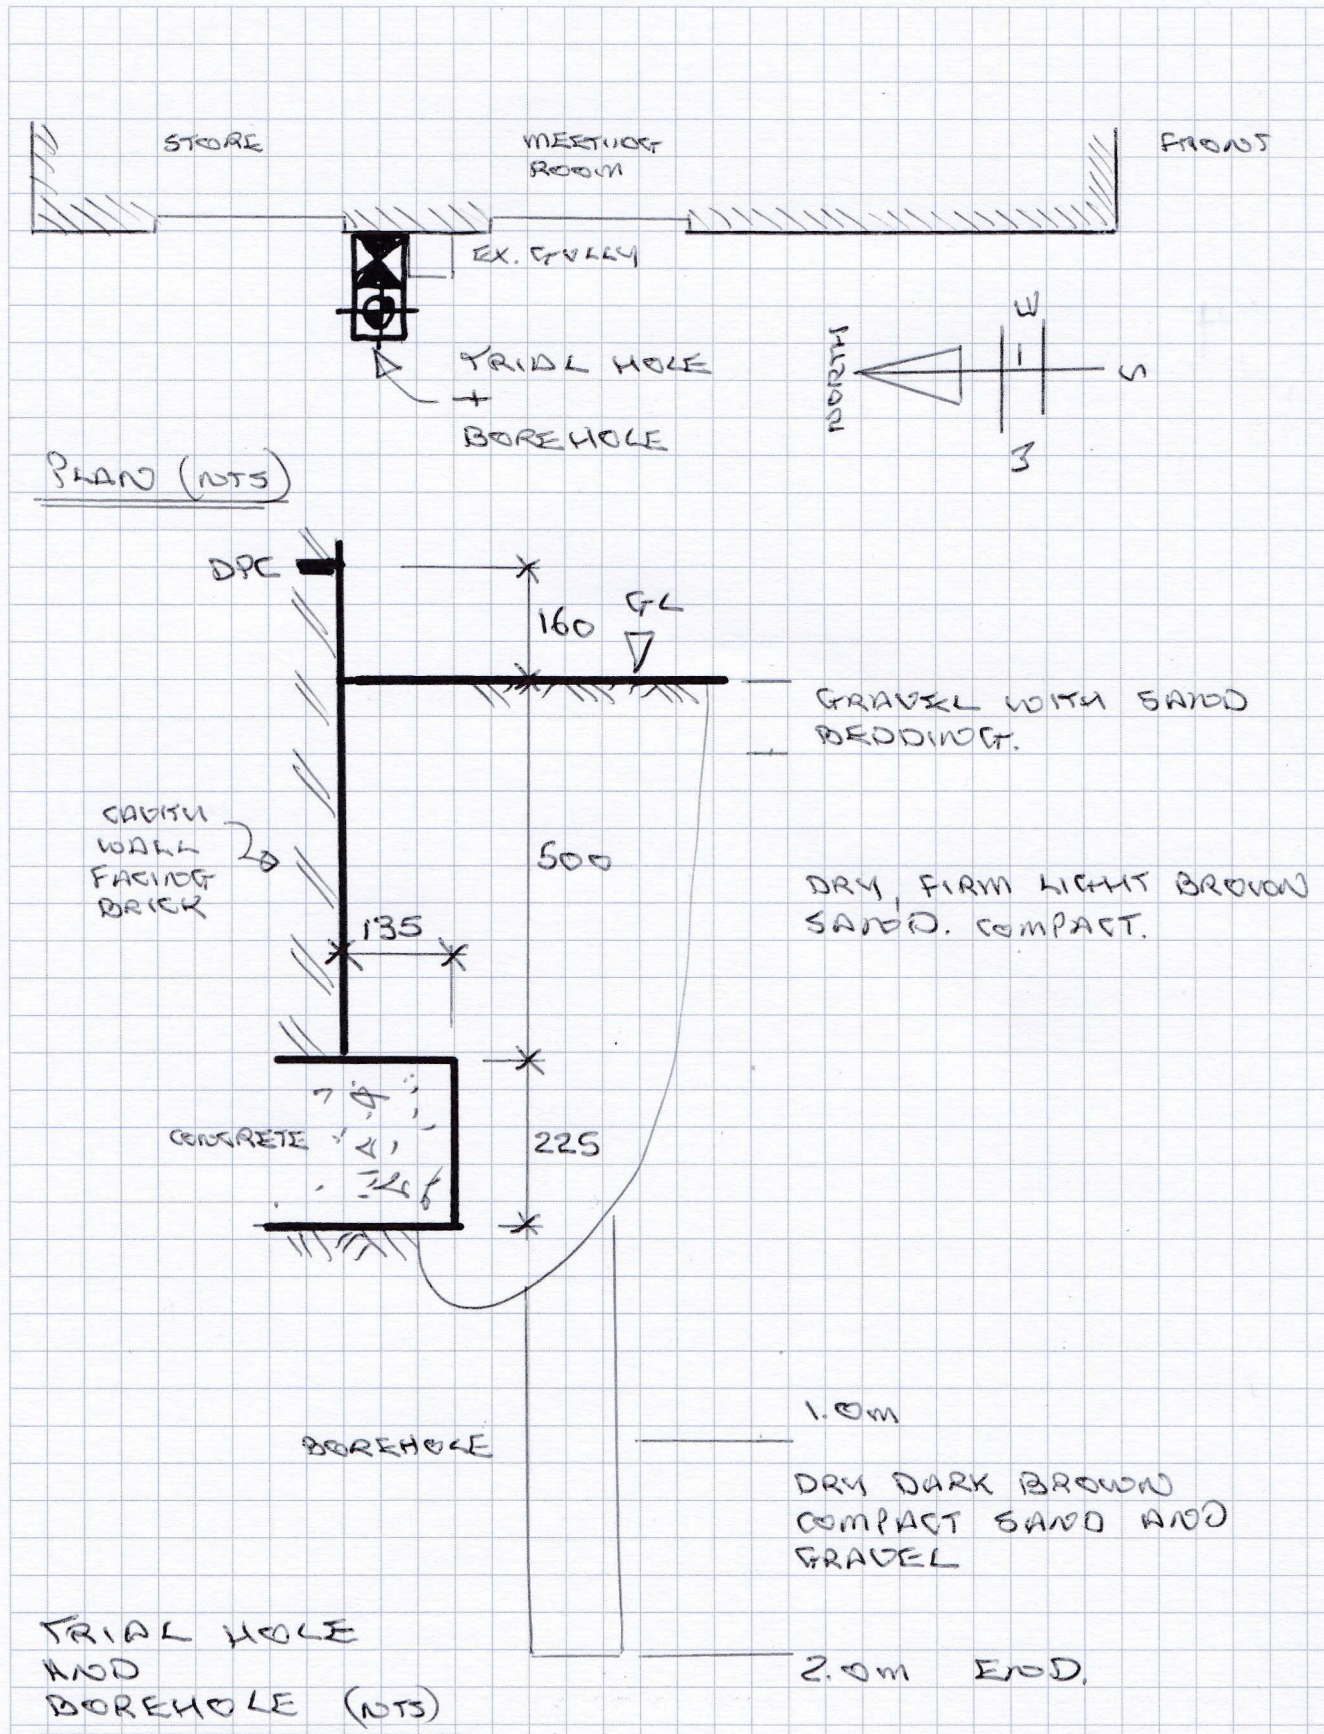 STORE
MEETING
ROOM
FRONT
EX. GULLY
TRIAL HOLE
+
BOREHOLE
NORTH
E
S
W
PLAN (NTS)
DPC
160
GL
GRAVEL WITH SAND
BEDDING.
CAVITY
WALL
FACING
BRICK
500
DRY, FIRM LIGHT BROWN
SAND. COMPACT.
135
CONCRETE
225
BOREHOLE
1.0m
DRY DARK BROWN
COMPACT SAND AND
GRAVEL
2.0m END.
TRIAL HOLE
AND
BOREHOLE (NTS)